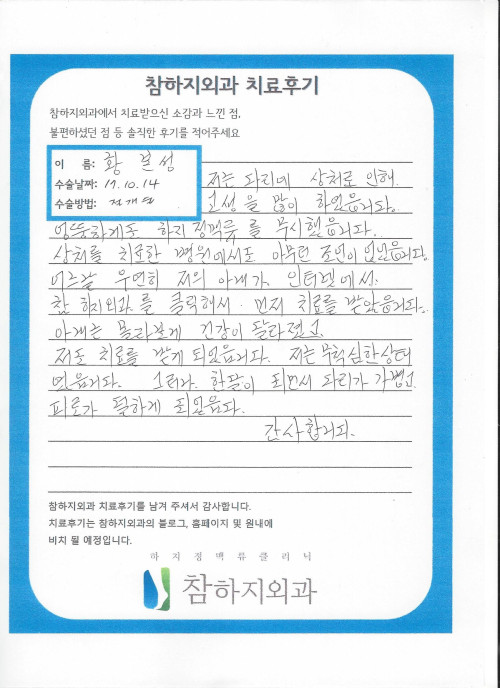 참하지외과 치료후기
참하지외과에서 치료받으신 소감과 느낀 점,
불편하셨던 점 등 솔직한 후기를 적어주세요
이 름: 황
수술날짜: 17.10.14
수술방법:
저는 다리에 상처로 인해.
고생을 많이 하였읍니다.
엉뚱하게도 하지정맥류를 무시했읍니다.
상처를 치료한 병원에서도 아무런 조언이 없었읍니다.
어느날 우연히 저의 아내가 인터넷에서.
참 하지외과를 클릭해서. 먼저 치료를 받았읍니다.
아내는 몰라보게 건강이 달라졌고
저도 치료를 받게 되었읍니다. 저는 무척 심한 상태
였읍니다. 그러나. 한달이 되면서 다리가 가볍고
피로가 덜하게 되었읍니다.
감사합니다.
참하지외과 치료후기를 남겨 주셔서 감사합니다.
치료후기는 참하지외과의 블로그, 홈페이지 및 원내에
비치 될 예정입니다.
하지정맥류클리닉
참하지외과